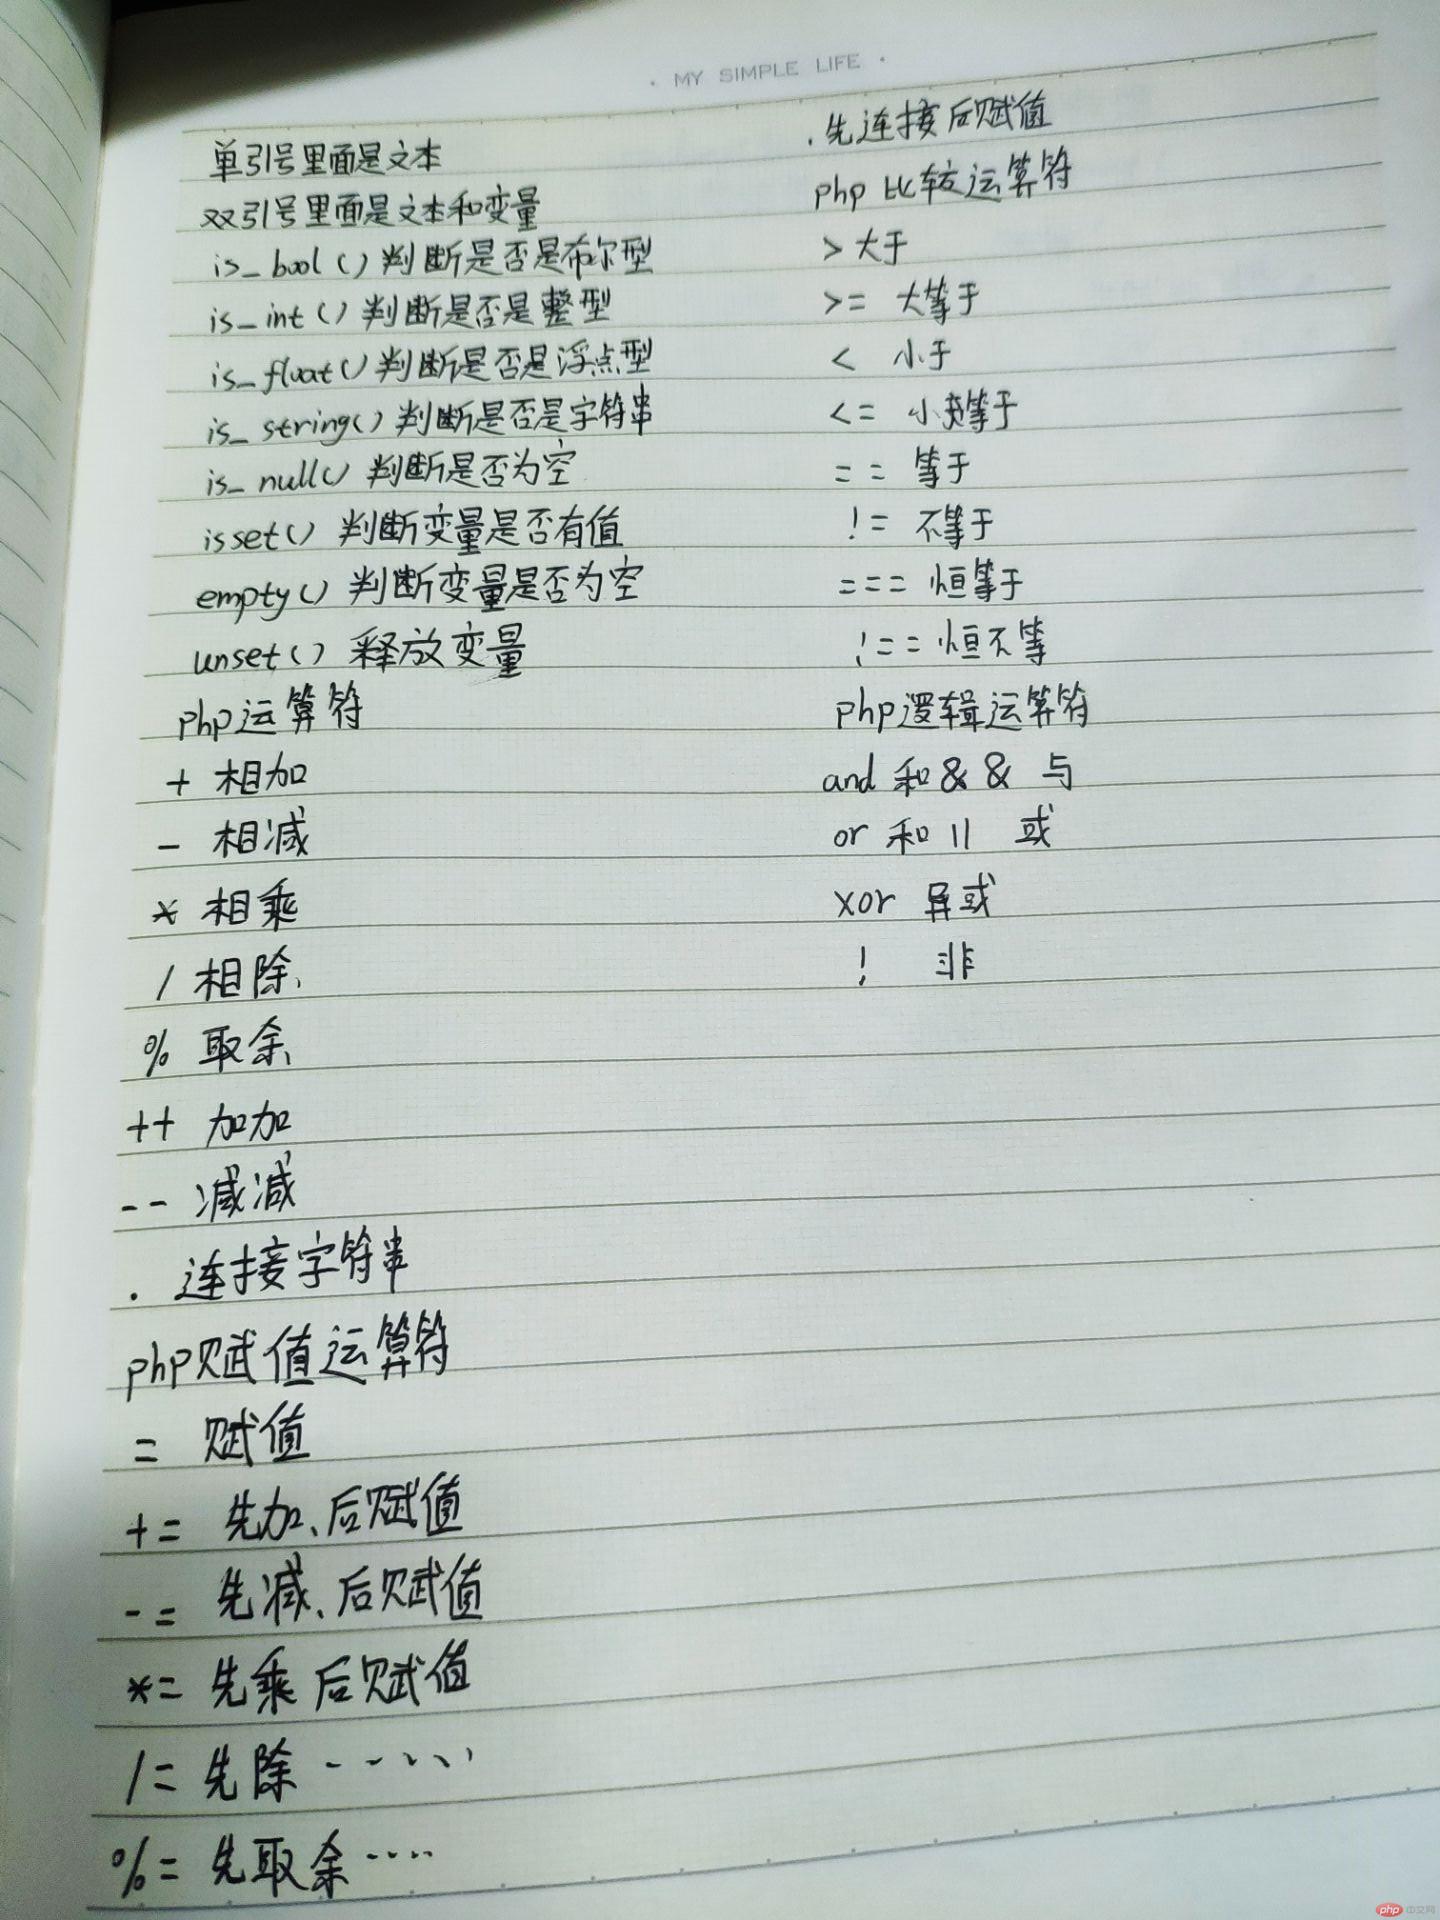 · MY SIMPLE LIFE ·
单引号里面是文本
双引号里面是文本和变量
is_bool()判断是否是布尔型
is_int()判断是否是整型
is_float()判断是否是浮点型
is_string()判断是否是字符串
is_null()判断是否为空
isset()判断变量是否有值
empty()判断变量是否为空
unset()释放变量
php运算符
+ 相加
- 相减
* 相乘
/ 相除
% 取余
++ 加加
-- 减减
. 连接字符串
php赋值运算符
= 赋值
+= 先加、后赋值
-= 先减、后赋值
*= 先乘后赋值
/= 先除······
%= 先取余····
.先连接后赋值
php比较运算符
> 大于
>= 大等于
< 小于
<= 小等于
== 等于
!= 不等于
=== 恒等于
!== 恒不等
php逻辑运算符
and 和 && 与
or 和 || 或
xor 异或
! 非
php 中文网